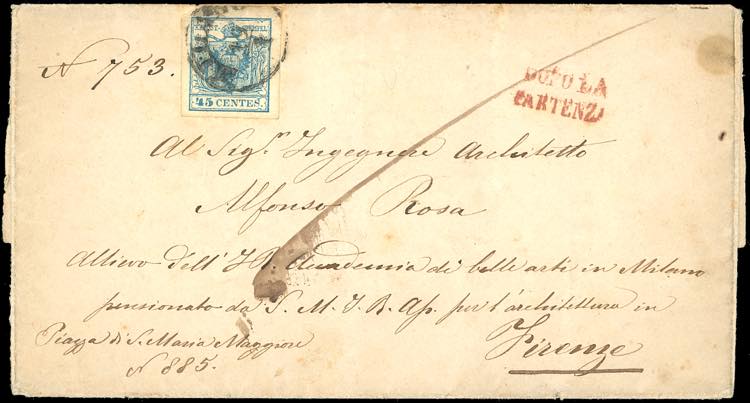 N 753.
45 CENTES.
DOPO LA
PARTENZA
Al Sig.r Ingegnere Architetto
Alfonso Rosa
Allievo dell' I. R. Accademia di belle arti in Milano
pensionato da S. M. I. R. Ap. per l'architettura in
Firenze
Piazza di S. Maria Maggiore
N 885.